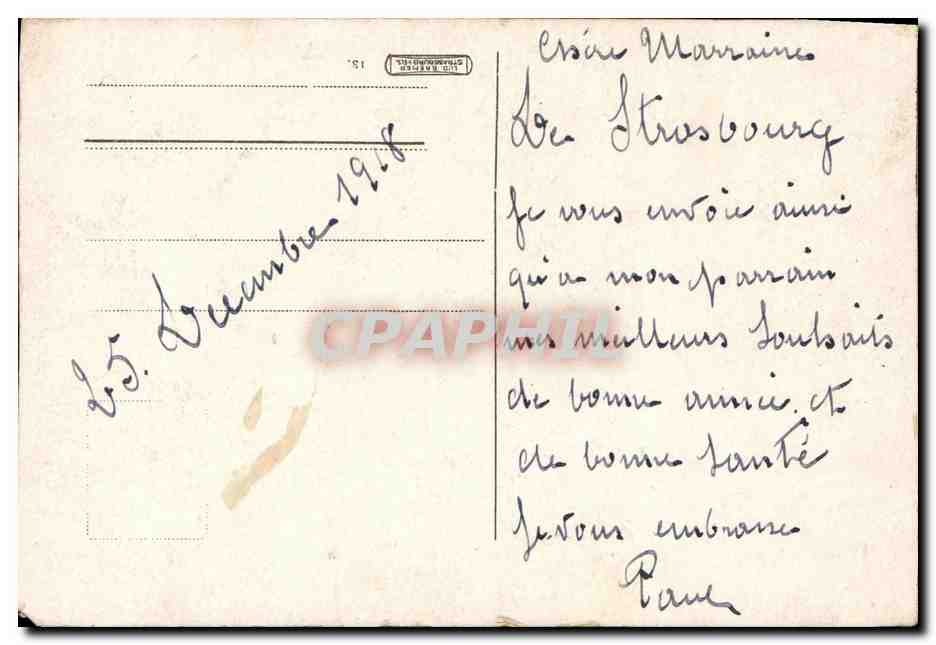 25. Decembre 1918
Chère Marraine
De Strasbourg
je vous envoie ainsi
qu'a mon parrain
mes meilleurs souhaits
de bonne année et
de bonne santé
je vous embrasse
CPAPHIL
LUD. BREMER
STRASSBURG I. ELS.
13.